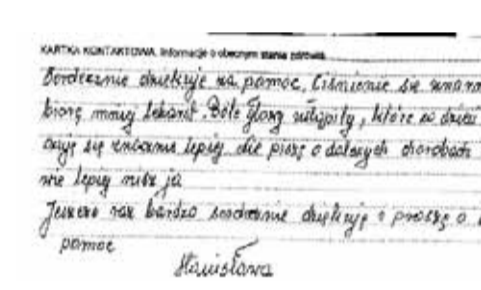 KARTKA KONTAKTOWA. Informacje o obecnym stanie zdrowia
Serdecznie dziękuję za pomoc, Ciśnienie się
biorę mniej lekarst. Bóle głowy ustąpiły, które
czuję się znacznie lepiej ale piszę o dalszych chorobach
nie lepiej niż ja
Jeszcze raz bardzo serdecznie dziękuję i proszę o
pomoc
Stanisława